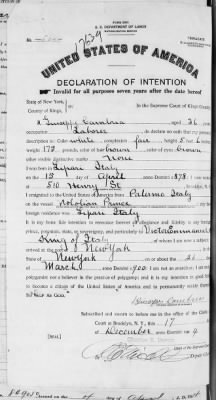 U. S. DEPARTMENT OF LABOR
UNITED STATES OF AMERICA
DECLARATION OF INTENTION
Invalid for all purposes seven years after the date hereof
State of New York,
County of Kings,
In the Supreme Court of Kings County
I, Giuseppe aged 36
occupation Laborer, do declare on oath that my personal
description is: Color white, complexion fair, height 5 feet
weight 172 pounds, color of hair brown, color of eyes brown
other visible distinctive marks None
Lipari Italy
on the 13 day of April, anno Domini 1 878; I now reside
at 510 Henry St
I emigrated to the United States of America from Palermo Italy
on the vessel Prince
foreign residence was Lipari Italy
It is my bona fide intention to renounce forever all allegiance and fidelity to any foreign
prince, potentate, state, or sovereignty, and particularly to Victor Emmanuel
King of Italy, of whom I am now a subject
arrived at the port of New York
State of New York, on or about the 21 day
of March, anno Domini 1 902; I am not an anarchist; I am not a
polygamist nor a believer in the practice of polygamy; and it is my intention in good faith
to become a citizen of the United States of America and to permanently reside therein:
SO HELP ME GOD.
Subscribed and sworn to before me in the office of the Clerk
at Brooklyn, N. Y., this 17
December